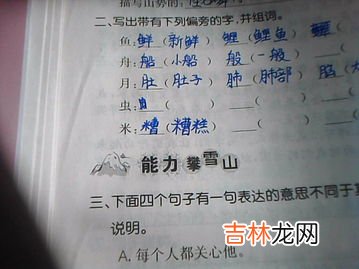 描写山势的:
二、写出带有下列偏旁的字,并组词。
鱼:鲜(新鲜) 鲤(鲤鱼) 鳔
舟:船(小船) 般(一般) (
月:肚(肚子) 肺(肺部) 脑(
虫: ( ) ( ) (
米:糟(糟糕) ( ) (
能力攀雪山
三、下面四个句子有一句表达的意思不同于
说明。
A. 每个人都关心他。
吉林龙网